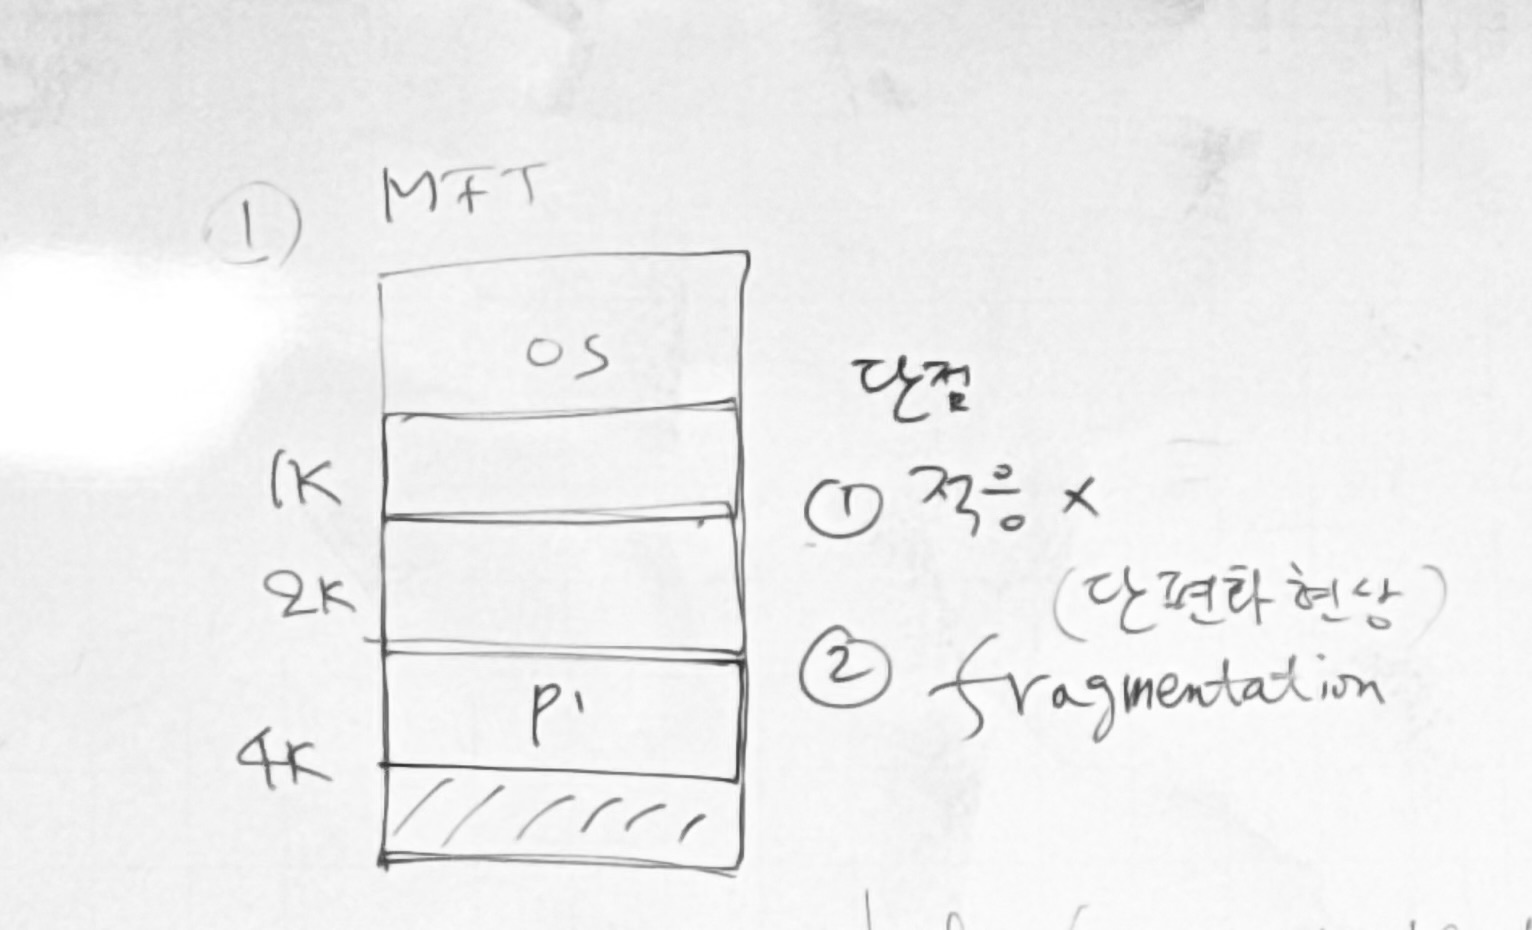 ① MFT
OS
1K
2K
P1
4K
단점
① 적응 ×
(단편화 현상)
② fragmentation